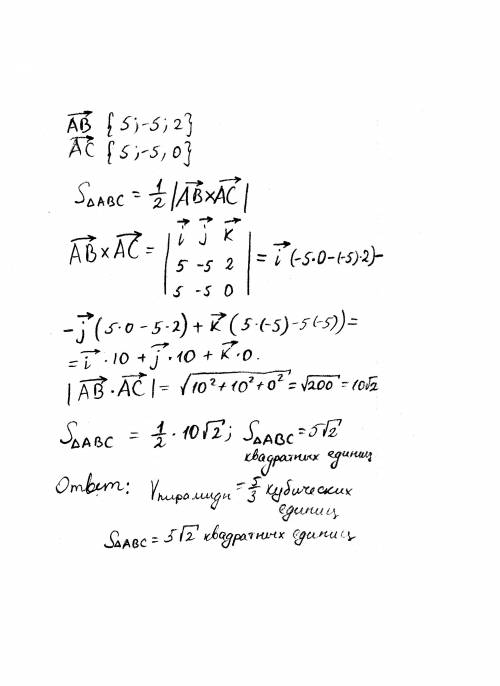 AB {5;-5;2}
AC {5;-5,0}
S△ABC = 1/2 |AB×AC|
AB×AC = | i j k | = i (-5·0-(-5)·2)-
5 -5 2
5 -5 0
-j (5·0-5·2)+k (5·(-5)-5(-5))=
= i·10+j·10+k·0.
|AB·AC| = √10²+10²+0² = √200 = 10√2
S△ABC = 1/2 · 10√2; S△ABC = 5√2
квадратных единиц
Ответ: Vпирамиды = 5/3 кубических
единиц
S△ABC = 5√2 квадратных единиц